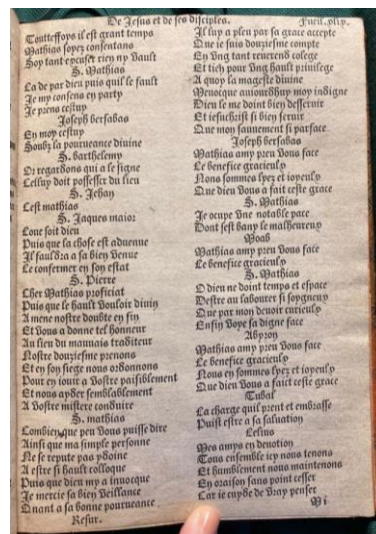 De Jesus et de ses disciples.
Fueil.xlix.
Toutteffoys il est grant temps
Mathias soyez consentans
Soy tant excuser rien ny vault
S. Mathias
La de par dieu puis quil le fault
Je my consens en party
Je prens cestuy
Joseph bersabas
En moy cestuy
Soubz la pourueance diuine
S. barthelemy
Or regardons qui a le signe
Celluy doit possesser du lieu
S. Jehan
Cest mathias
S. Jaques maior
Loue soit dieu
Puis que la chose est aduenue
Il fauldra a sa bien venue
Le confermer en son estat
S. Pierre
Cher Mathias proficiat
Puis que le hault vouloir diuin
A mene nostre doubte en fin
Et vous a donne tel honneur
Au lieu du mauuais traditeur
Nostre douziesme prenons
Et en soy siege nous ordonnons
Pour en iouir a vostre paisiblement
Et nous ayder semblablement
A vostre mistere conduire
S. mathias
Combien que peu vous puisse dire
Ainsi que ma simple personne
Ne se repute pas ydoine
A estre si hault colloque
Puis que dieu my a inuocque
Je mercie sa bien veillance
Quant a sa bonne pourueance
Resur.
Il luy a pleu par sa grace accepte
Que ie suis douziesme compte
En vng tant reuerend colege
Et tich pour vng hault priuilege
A quoy la mageste diuine
Meuocque auiourdhuy moy indigne
Dieu le me doint bien desseruir
Et iesuchrist si bien seruir
Que mon sauuement si parface
Joseph bersabas
Mathias amy preu vous face
Le benefice gracieulx
Nous sommes lyez et ioyeulx
Que dieu vous a fait ceste grace
S. Mathias
Je ocupe vne notable pace
Dont sest bany le malheureux
Moab
Mathias amy preu vous face
Le benefice gracieulx
S. Mathias
O dieu ne doint temps et espace
Destre au labourer si soygneux
Que par mon deuoit curieulx
Enfin voye sa digne face
Abyron
Mathias amy preu vous face
Le benefice gracieulx
Nous en sommes lyez et ioyeulx
Que dieu vous a faict ceste grace
Tubal
La charge quil prent et embrasse
Puist estre a sa saluation
Celius
Mes amys en deuotion
Tous ensemble icy nous tenons
Et humblement nous maintenons
En oraison sans point cesser
Car ie cuyde de vray penser
Mi